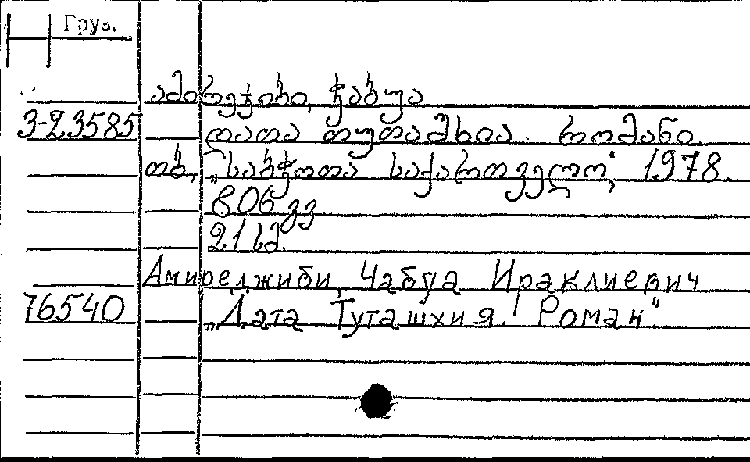 Груз.
ამირეჯიბი, ჭაბუა
3-23585 დათა თუთაშხია. რომანი.
თბ., „საბჭოთა საქართველო“, 1978.
806 გვ.
21 სმ.
Амиреджиби, Чабуа Ираклиевич
76540 „Дата Туташхия. Роман“.